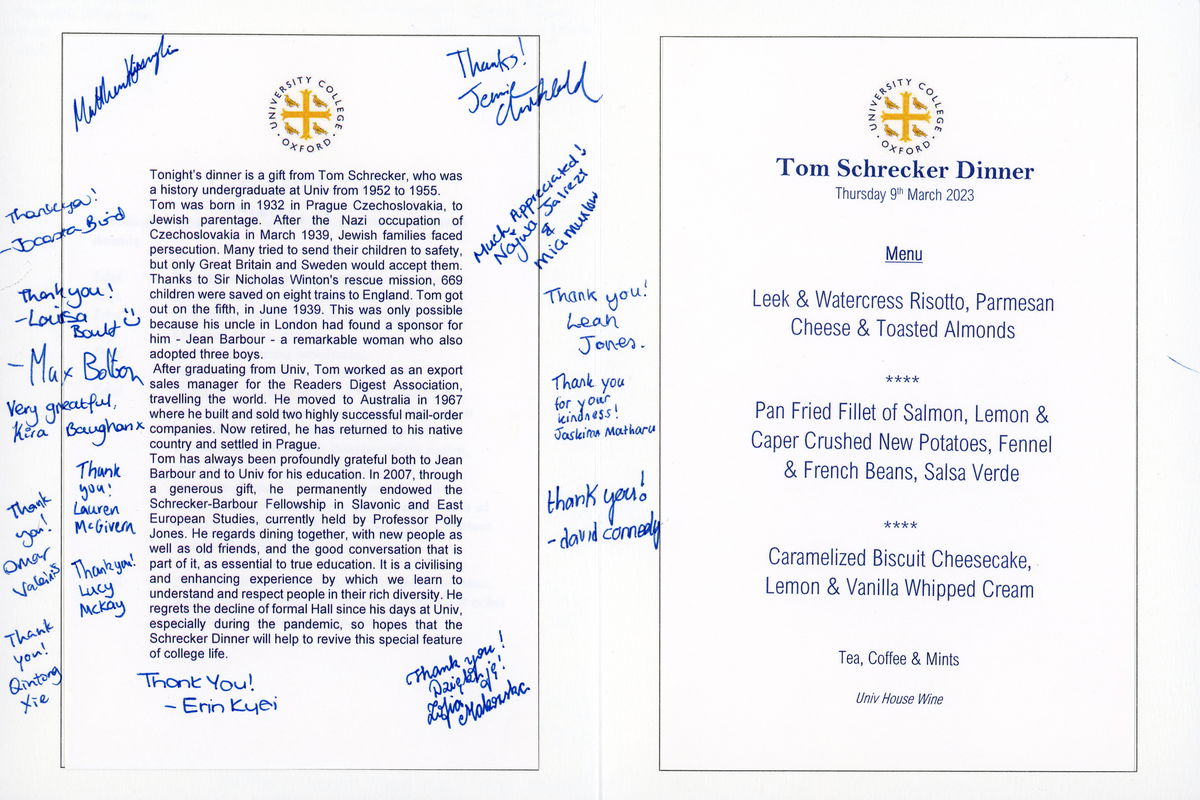 Thanks!
UNIVERSITY COLLEGE
· OXFORD ·
Tonight's dinner is a gift from Tom Schrecker, who was
a history undergraduate at Univ from 1952 to 1955.
Tom was born in 1932 in Prague Czechoslovakia, to
Jewish parentage. After the Nazi occupation of
Czechoslovakia in March 1939, Jewish families faced
persecution. Many tried to send their children to safety,
but only Great Britain and Sweden would accept them.
Thanks to Sir Nicholas Winton's rescue mission, 669
children were saved on eight trains to England. Tom got
out on the fifth, in June 1939. This was only possible
because his uncle in London had found a sponsor for
him - Jean Barbour - a remarkable woman who also
adopted three boys.
After graduating from Univ, Tom worked as an export
sales manager for the Readers Digest Association,
travelling the world. He moved to Australia in 1967
where he built and sold two highly successful mail-order
companies. Now retired, he has returned to his native
country and settled in Prague.
Tom has always been profoundly grateful both to Jean
Barbour and to Univ for his education. In 2007, through
a generous gift, he permanently endowed the
Schrecker-Barbour Fellowship in Slavonic and East
European Studies, currently held by Professor Polly
Jones. He regards dining together, with new people as
well as old friends, and the good conversation that is
part of it, as essential to true education. It is a civilising
and enhancing experience by which we learn to
understand and respect people in their rich diversity. He
regrets the decline of formal Hall since his days at Univ,
especially during the pandemic, so hopes that the
Schrecker Dinner will help to revive this special feature
of college life.
Thank you!
Thank you!
- Louisa
Boult
- Max Bolton
Very greatful,
Kira Baughan x
Thank
you!
Lauren
McGivern
Thank
you!
Omar
Thank you!
Lucy
McKay
Thank
you!
Qintong
Xie
Thank You!
- Erin Kyei
Much Appreciated!
Najwa
&
Mia
Thank you!
Leah
Jones.
Thank you
for your
kindness!
Jaskiran Matharu
thank you!
- david connedy
Thank you!
Dziękuję!
Zofia
UNIVERSITY COLLEGE
· OXFORD ·
Tom Schrecker Dinner
Thursday 9th March 2023
Menu
Leek & Watercress Risotto, Parmesan
Cheese & Toasted Almonds
****
Pan Fried Fillet of Salmon, Lemon &
Caper Crushed New Potatoes, Fennel
& French Beans, Salsa Verde
****
Caramelized Biscuit Cheesecake,
Lemon & Vanilla Whipped Cream
Tea, Coffee & Mints
Univ House Wine